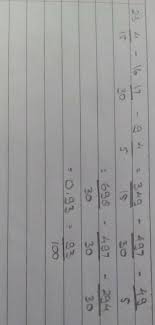 23 4/15 - 16 17/30 - 9 4/5 = 349/15 - 497/30 - 49/5
= 698/30 - 497/30 - 294/30
= 0,93 = 93/100